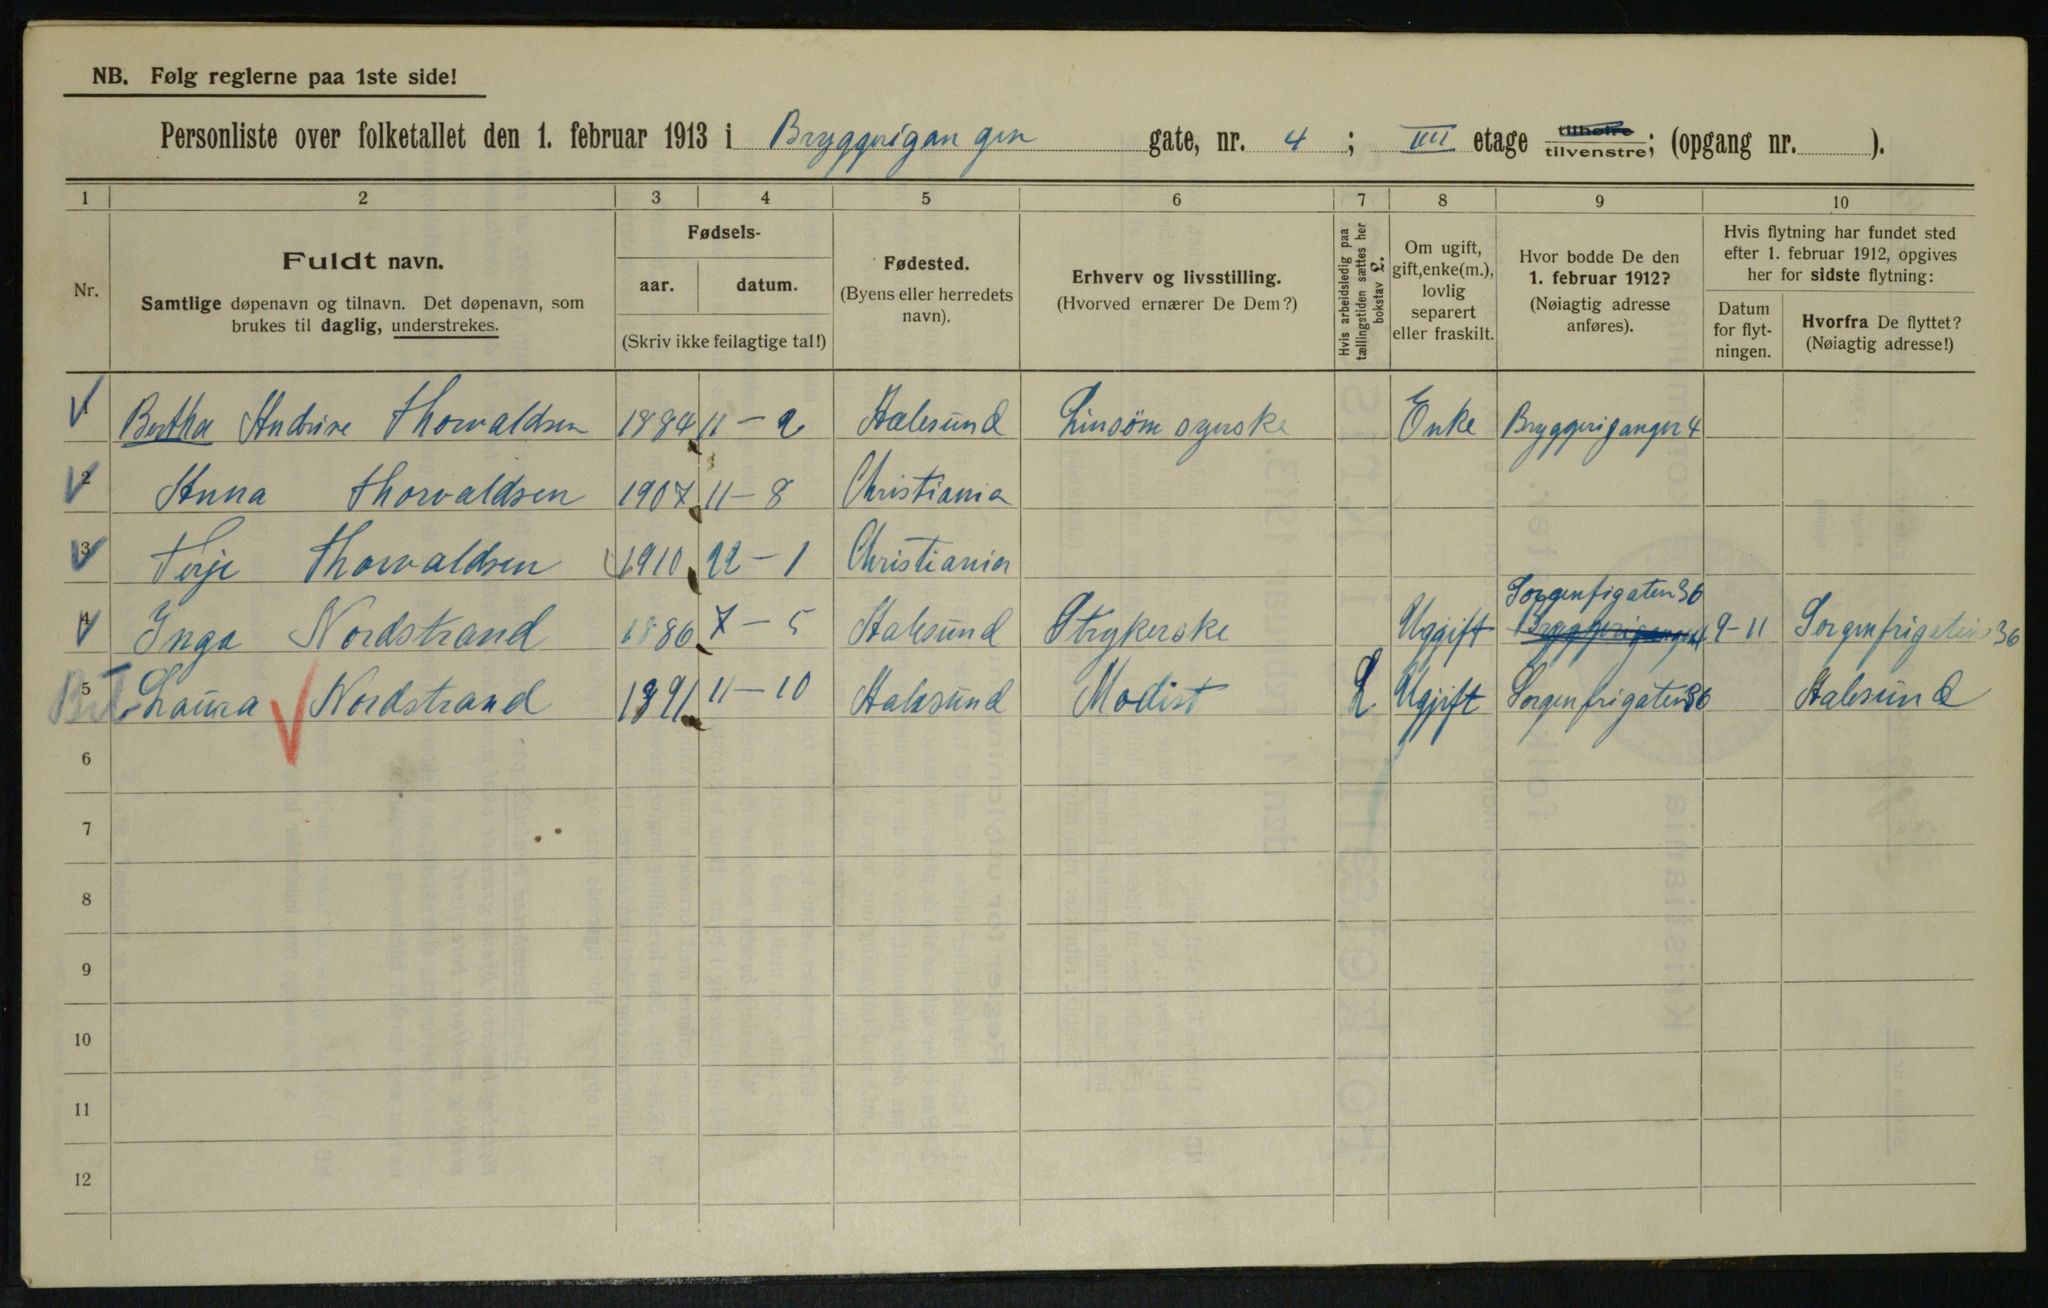 NB. Følg reglerne paa 1ste side!
Personliste over folketallet den 1. februar 1913 i Bryggerigangen gate, nr. 4 ; IIII etage tilhøire tilvenstre; (opgang nr. ).
1 2 3 4 5 6 7 8 9 10
Nr.
Fuldt navn.
Samtlige døpenavn og tilnavn. Det døpenavn, som
brukes til daglig, understrekes.
Fødsels-
aar. datum.
(Skriv ikke feilagtige tal!)
Fødested.
(Byens eller herredets
navn).
Erhverv og livsstilling.
(Hvorved ernærer De Dem?)
Hvis arbeidsledig paa
tællingstiden sættes her
bokstav L.
Om ugift,
gift, enke(m.),
lovlig
separert
eller fraskilt.
Hvor bodde De den
1. februar 1912?
(Nøiagtig adresse
anføres).
Hvis flytning har fundet sted
efter 1. februar 1912, opgives
her for sidste flytning:
Datum
for flyt-
ningen.
Hvorfra De flyttet?
(Nøiagtig adresse!)
1 Bertha Andrine Thorvaldsen 1884 11-2 Aalesund Linsømsyerske Enke Bryggerigangen 4
2 Anna Thorvaldsen 1907 11-8 Christiania
3 Terje Thorvaldsen 1910 22-1 Christiania
Sorgenfrigaten 36
4 Inga Nordstrand 1886 7-5 Aalesund Strykerske Uggift Bryggerigangen 4 9-11 Sorgenfrigaten 36
5 Laura Nordstrand 1891 11-10 Aalesund Modist L Uggift Sorgenfrigaten 36 Aalesund
6
7
8
9
10
11
12